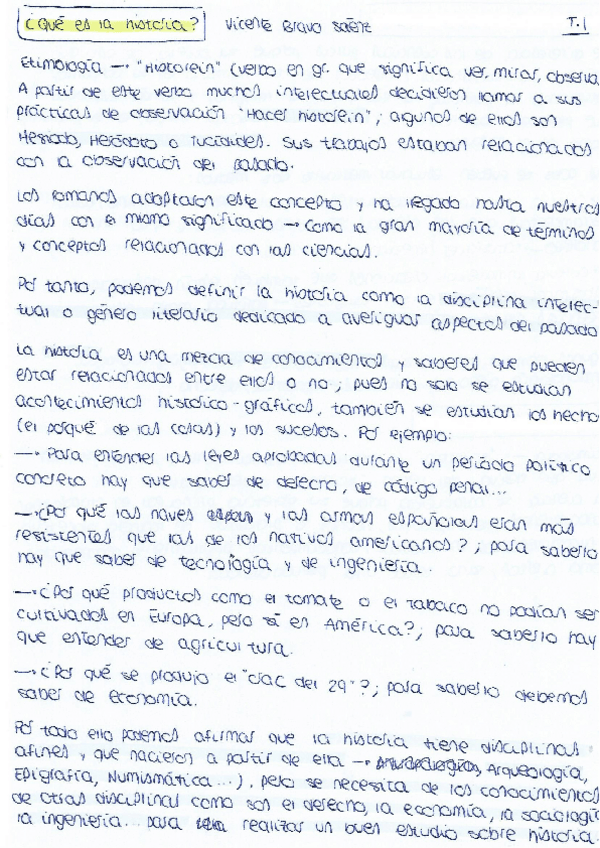 ¿Qué es la historia? Vicente Bravo Saénz T.1
Etimología → "Historein" (verbo en gr. que significa ver, mirar, observa
A partir de este verbo muchos intelectuales decidieron llamar a sus
prácticas de observación "Hacer historein"; algunos de ellos son
Hesíodo, Heródoto o Tucídides. Sus trabajos estaban relacionados
con la observación del pasado.
Los romanos adoptaron este concepto y ha llegado hasta nuestros
días con el mismo significado → Como la gran mayoría de términos
y conceptos relacionados con las ciencias.
Por tanto, podemos definir la historia como la disciplina intelec-
tual o género literario dedicado a averiguar aspectos del pasado
La historia es una mezcla de conocimientos y saberes que pueden
estar relacionados entre ellos o no; pues no solo se estudian
acontecimientos histórico-gráficos, también se estudian los hechos
(el porqué de las cosas) y los sucesos. Por ejemplo:
→ Para entender las leyes aprobadas durante un período político
concreto hay que saber de derecho, de código penal...
→ ¿Por qué las naves y las armas españolas eran más
resistentes que las de los nativos americanos?; para saberlo
hay que saber de tecnología y de ingeniería.
→ ¿Por qué productos como el tomate o el tabaco no podían ser
cultivados en Europa, pero sí en América?; para saberlo hay
que entender de agricultura.
→ ¿Por qué se produjo el "crac del 29"?; para saberlo debemos
saber de economía.
Por todo ello podemos afirmar que la historia tiene disciplinas
afines y que nacieron a partir de ella → Arqueología,
Epigrafía, Numismática...), pero se necesita de los conocimientos
de otras disciplinas como son el derecho, la economía, la sociología
la ingeniería... para realizar un buen estudio sobre historia.